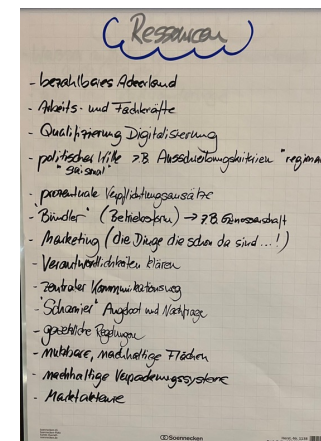 Ressourcen
- bezahlbares Ackerland
- Arbeits- und Fachkräfte
- Qualifizierung Digitalisierung
- politischer Wille z.B Ausschreibungskriterien "regional
"saisonal"
- prozentuale Verpflichtungsansätze
- "Bündler" (Betriebsform) → z.B. Genossenschaft
- Marketing (die Dinge die schon da sind...!)
- Verantwortlichkeiten klären
- zentraler Kommunikationsweg
- "Scharnier" Angebot und Nachfrage
- gesetzliche Regelungen
- nutzbare, nachhaltige Flächen
- nachhaltige Verpackungssysteme
- Marktakteure
Soennecken